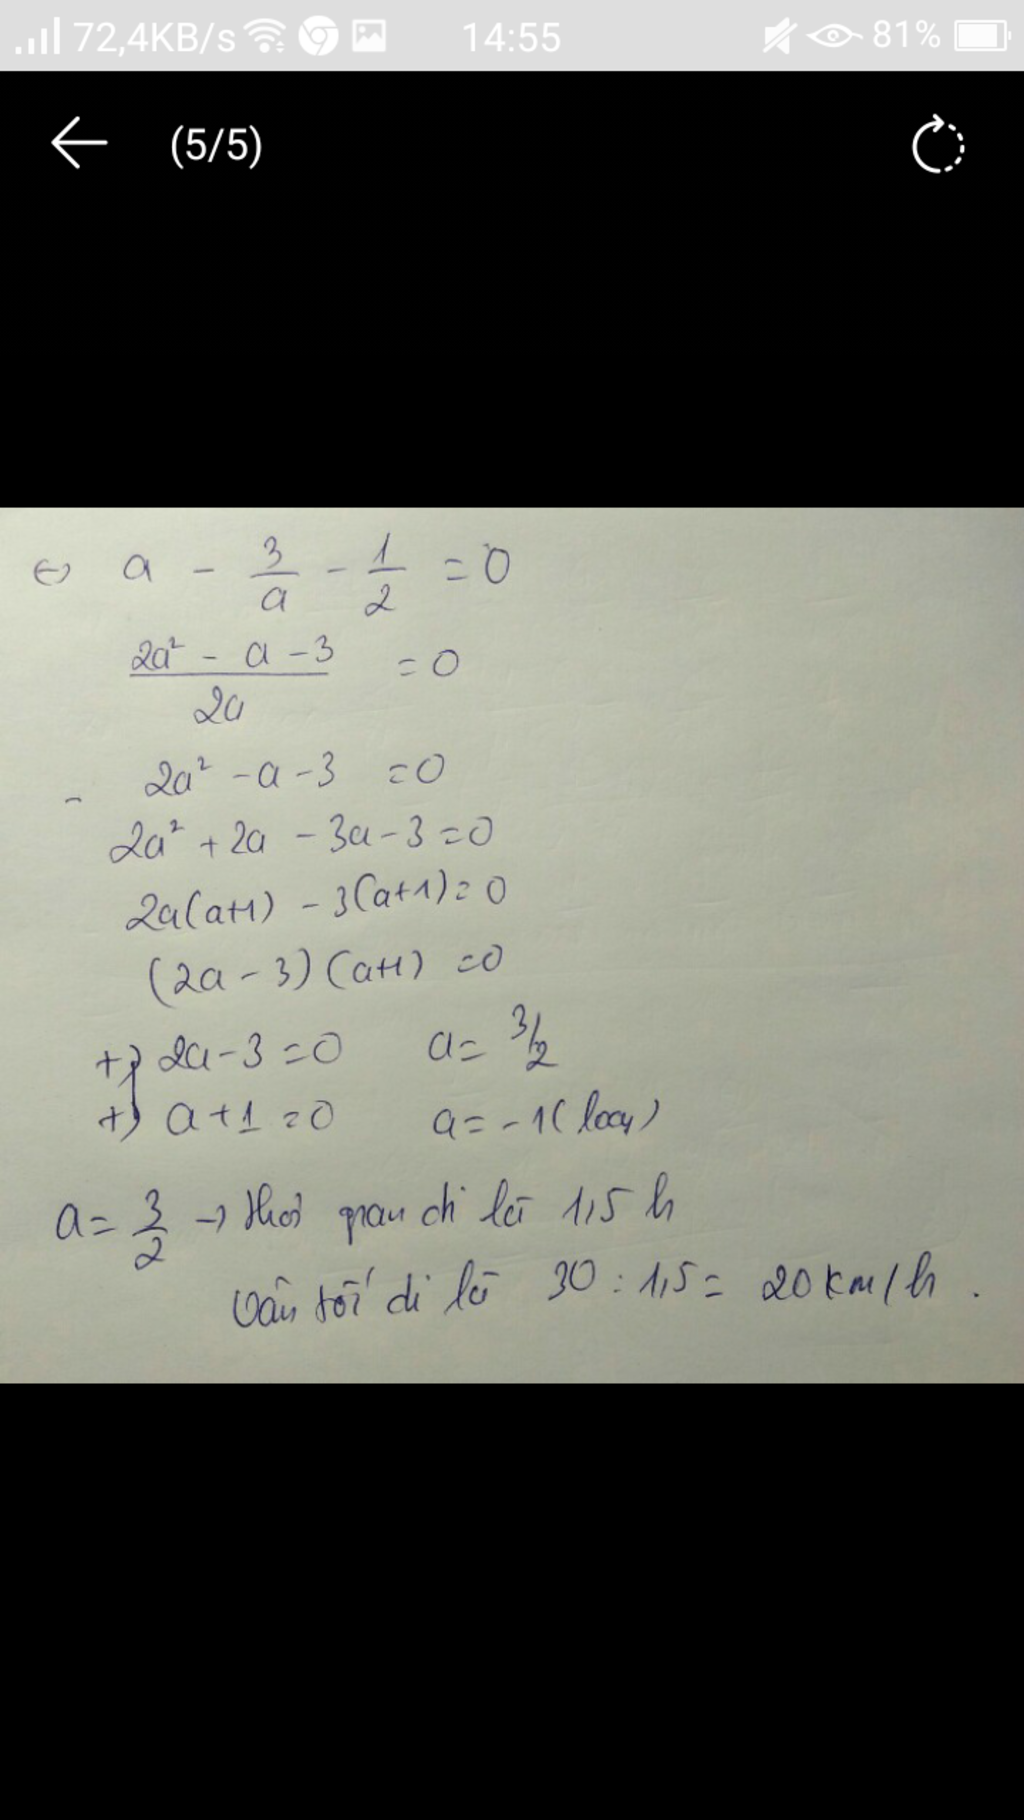 72,4KB/s 14:55 81%
(5/5)
⇔ a - 3/a - 1/2 = 0
(2a² - a - 3)/2a = 0
- 2a² - a - 3 = 0
2a² + 2a - 3a - 3 = 0
2a(a+1) - 3(a+1) = 0
(2a - 3)(a+1) = 0
+) 2a - 3 = 0 a = 3/2
+) a + 1 = 0 a = -1 (loại)
a = 3/2 → thời gian đi là 1,5 h
Vận tốc đi là 30 : 1,5 = 20 km/h .